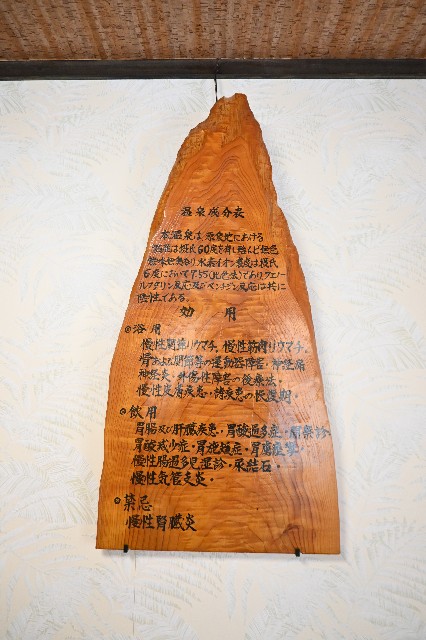 温泉成分表
本温泉は、泉源地における
泉温は摂氏60度を有し殆んど無色
無味無臭なり水素イオン濃度は摂氏
6度において7.55(比色法)であり、フェノー
ルフタリン反応及びベンチジン反応は共に
陰性である。
効用
◎浴用
慢性関節リウマチ。慢性筋肉リウマチ。
骨および関節等の運動器障害・神経痛
神経炎・外傷性障害の後療法・
慢性炭膚疾患・諸疾患の恢復期・
◎飲用
胃腸及び肝臓疾患・胃酸過多症・胃
胃酸減少症・胃
慢性腸・尿結石・
慢性気管支炎・
◎禁忌
慢性腎臓炎